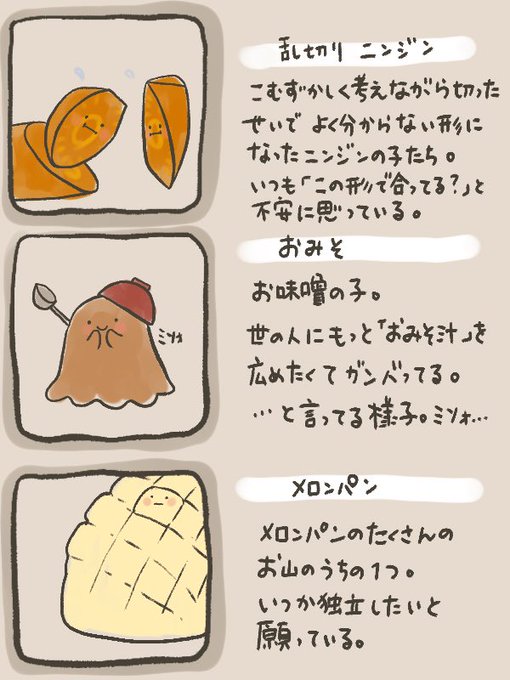 乱切り ニンジン
こむずかしく考えながら切った
せいで よく分からない形に
なったニンジンの子たち。
いつも「この形で合ってる?」と
不安に思っている。
おみそ
お味噌の子。
世の人にもっと「おみそ汁」を
広めたくてガンバってる。
…と言ってる様子。ミソォ…
ミソォ
メロンパン
メロンパンのたくさんの
お山のうちの1つ。
いつか独立したいと
願っている。